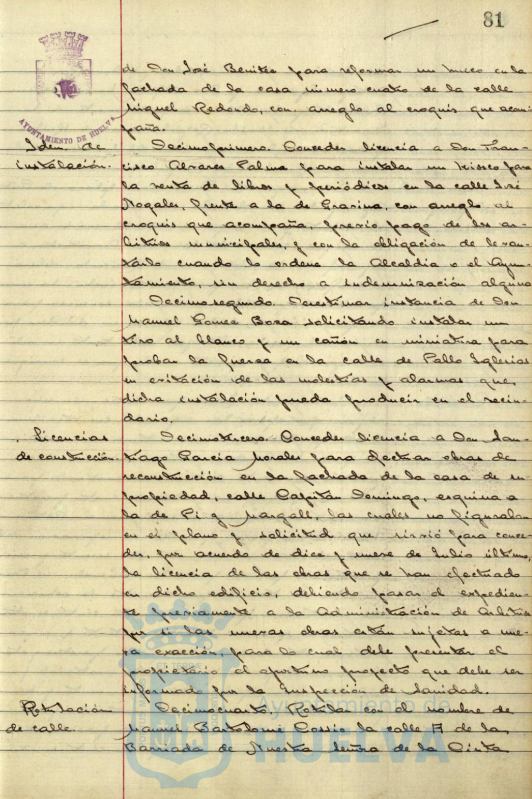 81
AYUNTAMIENTO DE HUELVA
de Don José Benitez para reformar un hueco en la
fachada de la casa número cuatro de la calle
Miguel Redondo, con arreglo al croquis que acom-
paña.
Idem de
instalación.
Decimoprimero. Conceder licencia a Don Fran-
cisco Alvarez Palma para instalar un kiosco para
la venta de libros y periódicos en la calle José
Nogales, frente a la de Gravina, con arreglo al
croquis que acompaña, previo pago de los ar-
bitrios municipales, y con la obligación de levan-
tarlo cuando lo ordene la Alcaldía o el Ayun-
tamiento, sin derecho a indemnización alguna
Decimosegundo. Desestimar instancia de Don
Manuel Gomez Boza solicitando instalar un
tiro al blanco y un cañón en miniatura para
probar la fuerza en la calle de Pablo Iglesias
en evitación de las molestias y alarmas que
dicha instalación pueda producir en el vecin-
dario.
Licencias
de construcción
Decimotercero. Conceder licencia a Don San-
tiago Garcia Morales para efectuar obras de
reconstrucción en la fachada de la casa de su
propiedad, calle Capitán Domingo, esquina a
la de Pi y Margall, las cuales no figuraban
en el plano y solicitud que sirvió para conce-
der, por acuerdo de diez y nueve de Julio último,
la licencia de las obras que se han efectuado
en dicho edificio, debiendo pasar el expedien-
te previamente a la Administración de Arbitrios
por si las nuevas obras están sujetas a nue-
va exacción, para lo cual debe presentar el
propietario el oportuno proyecto que debe ser
informado por la Inspección de Sanidad.
Rotulación
de calle.
Decimocuarto. Rotular con el nombre de
Manuel Bartolomé Cossio la calle A de la
Barriada de Nuestra Señora de la Cinta
Ayuntamiento de
HUELVA